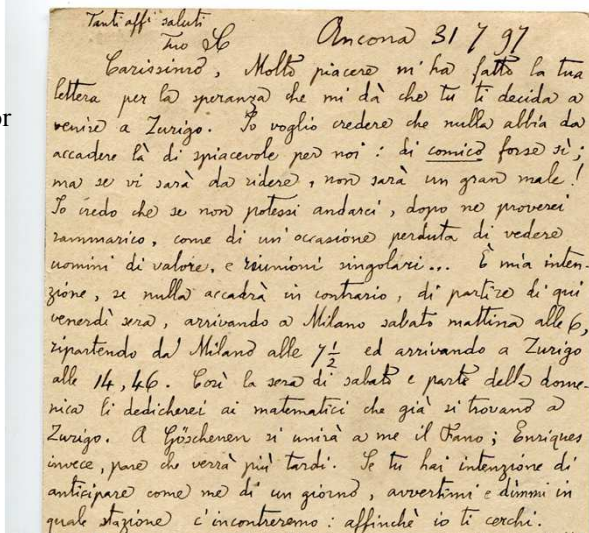 or
Tanti aff.i saluti
Tuo
Ancona 31 7 97
Carissimo, Molto piacere m'ha fatto la tua
lettera per la speranza che mi dà che tu ti decida a
venire a Zurigo. Io voglio credere che nulla abbia da
accadere là di spiacevole per noi: di comico forse sì;
ma se vi sarà da ridere, non sarà un gran male!
Io credo che se non potessi andarci, dopo ne proverei
rammarico, come di un'occasione perduta di vedere
uomini di valore, e riunioni singolari... È mia inten-
zione, se nulla accadrà in contrario, di partire di qui
venerdì sera, arrivando a Milano sabato mattina alle 6,
ripartendo da Milano alle 7 1/2 ed arrivando a Zurigo
alle 14,46. Così la sera di sabato e parte della dome-
nica li dedicherei ai matematici che già si trovano a
Zurigo. A Göschenen si unirà a me il Fano; Enriques
invece, pare che verrà più tardi. Se tu hai intenzione di
anticipare come me di un giorno, avvertimi e dimmi in
quale stazione c'incontreremo: affinchè io ti cerchi.